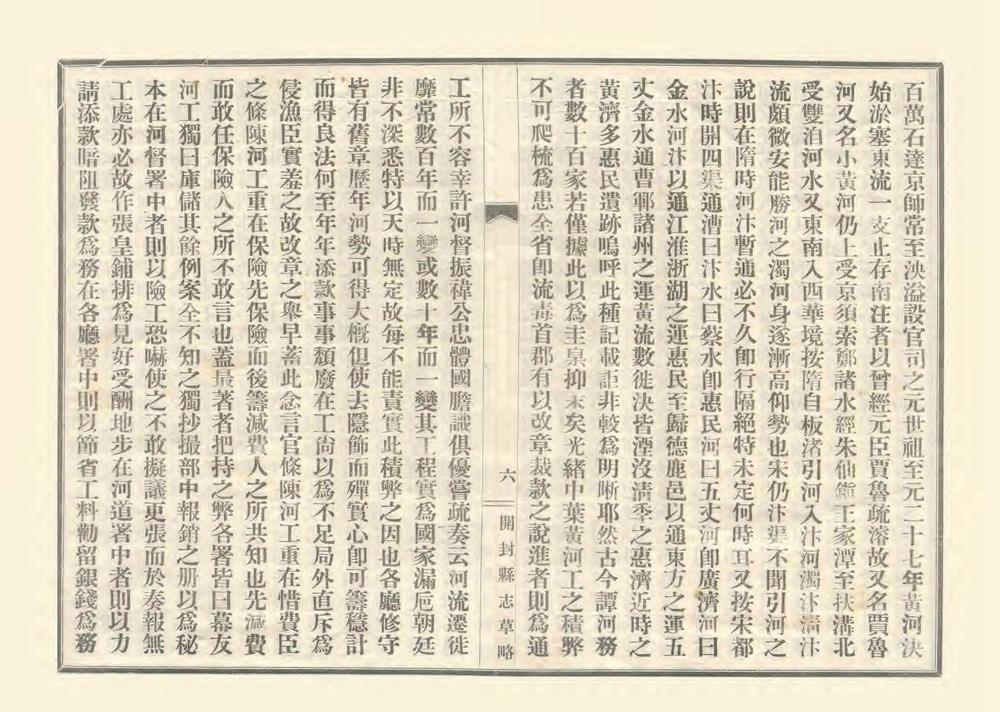 百萬石達京師常至泱溢設官司之元世祖至元二十七年黃河決
始淤塞東流一支止存南注者以曾經元臣賈魯疏濬故又名賈魯
河又名小黃河仍上受京須索鄭諸水經朱仙鎮王家潭至扶溝北
受雙洎河水又東南入西華境按隋自板渚引河入汴河濁汴清汴
流頗微安能勝河之濁河身逐漸高仰勢也宋仍汴渠不聞引河之
說則在隋時河汴暫通必不久卽行隔絕特未定何時耳又按宋都
汴時開四渠通漕曰汴水曰蔡水卽惠民河曰五丈河卽廣濟河曰
金水河汴以通江淮浙湖之運惠民至歸德鹿邑以通東方之運五
丈金水通曹鄆諸州之運黃流數徙決皆湮沒淸季之惠濟近時之
黃濟多惠民遺跡嗚呼此種記載詎非較爲明晰耶然古今譚河務
者數十百家若僅據此以爲圭臬抑末矣光緒中葉黃河工之積弊
不可爬梳爲患全省卽流毒首郡有以改章裁款之說進者則爲通
六
開封縣志草略
工所不容幸許河督振禕公忠體國膽識俱優嘗疏奏云河流遷徙
靡常數百年而一變或數十年而一變其工程實爲國家漏巵朝廷
非不深悉特以天時無定故每不能責實此積弊之因也各廳修守
皆有舊章歷年河勢可得大概但使去隱飾而殫實心卽可籌穩計
而得良法何至年年添款事事類廢在工尙以爲不足局外直斥爲
侵漁臣實羞之故改章之舉早蓄此念言官條陳河工重在惜費臣
之條陳河工重在保險先保險而後籌減費人之所共知也先減費
而敢任保險人之所不敢言也蓋最著者把持之弊各署皆曰幕友
河工獨曰庫儲其餘例案全不知之獨抄撮部中報銷之册以爲秘
本在河督署中者則以險工恐嚇使之不敢擬議更張而於奏報無
工處亦必故作張皇鋪排爲見好受酬地步在河道署中者則以力
請添款暗阻發款爲務在各廳署中則以節省工料勸留銀錢爲務